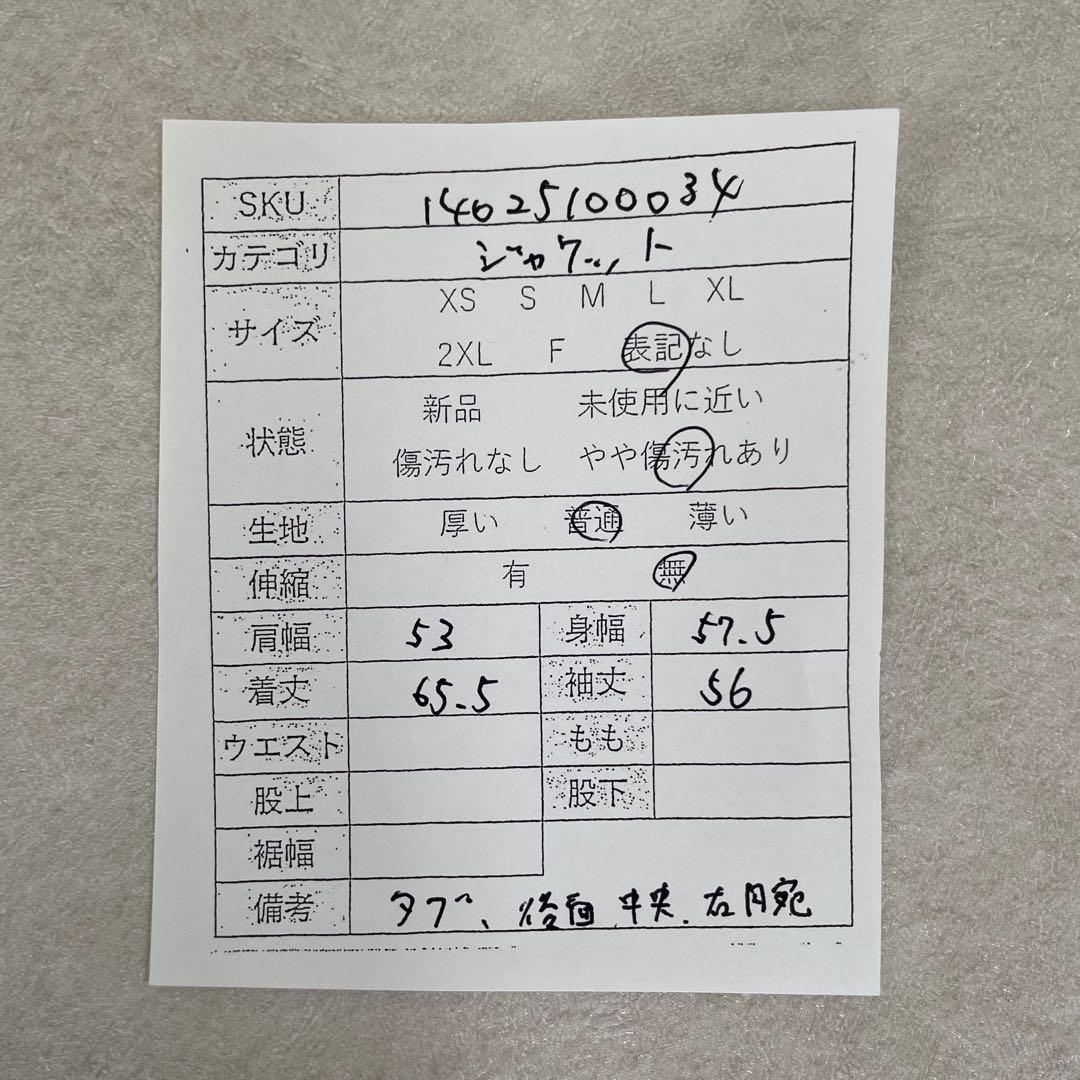 SKU 14025100034
カテゴリ ジャケット
XS S M L XL
サイズ
2XL F 表記なし
新品 未使用に近い
状態
傷汚れなし やや傷汚れあり
生地 厚い 普通 薄い
伸縮 有 無
肩幅 53 身幅 57.5
着丈 65.5 袖丈 56
ウエスト もも
股上 股下
裾幅
備考 タブ、後面、中央、右